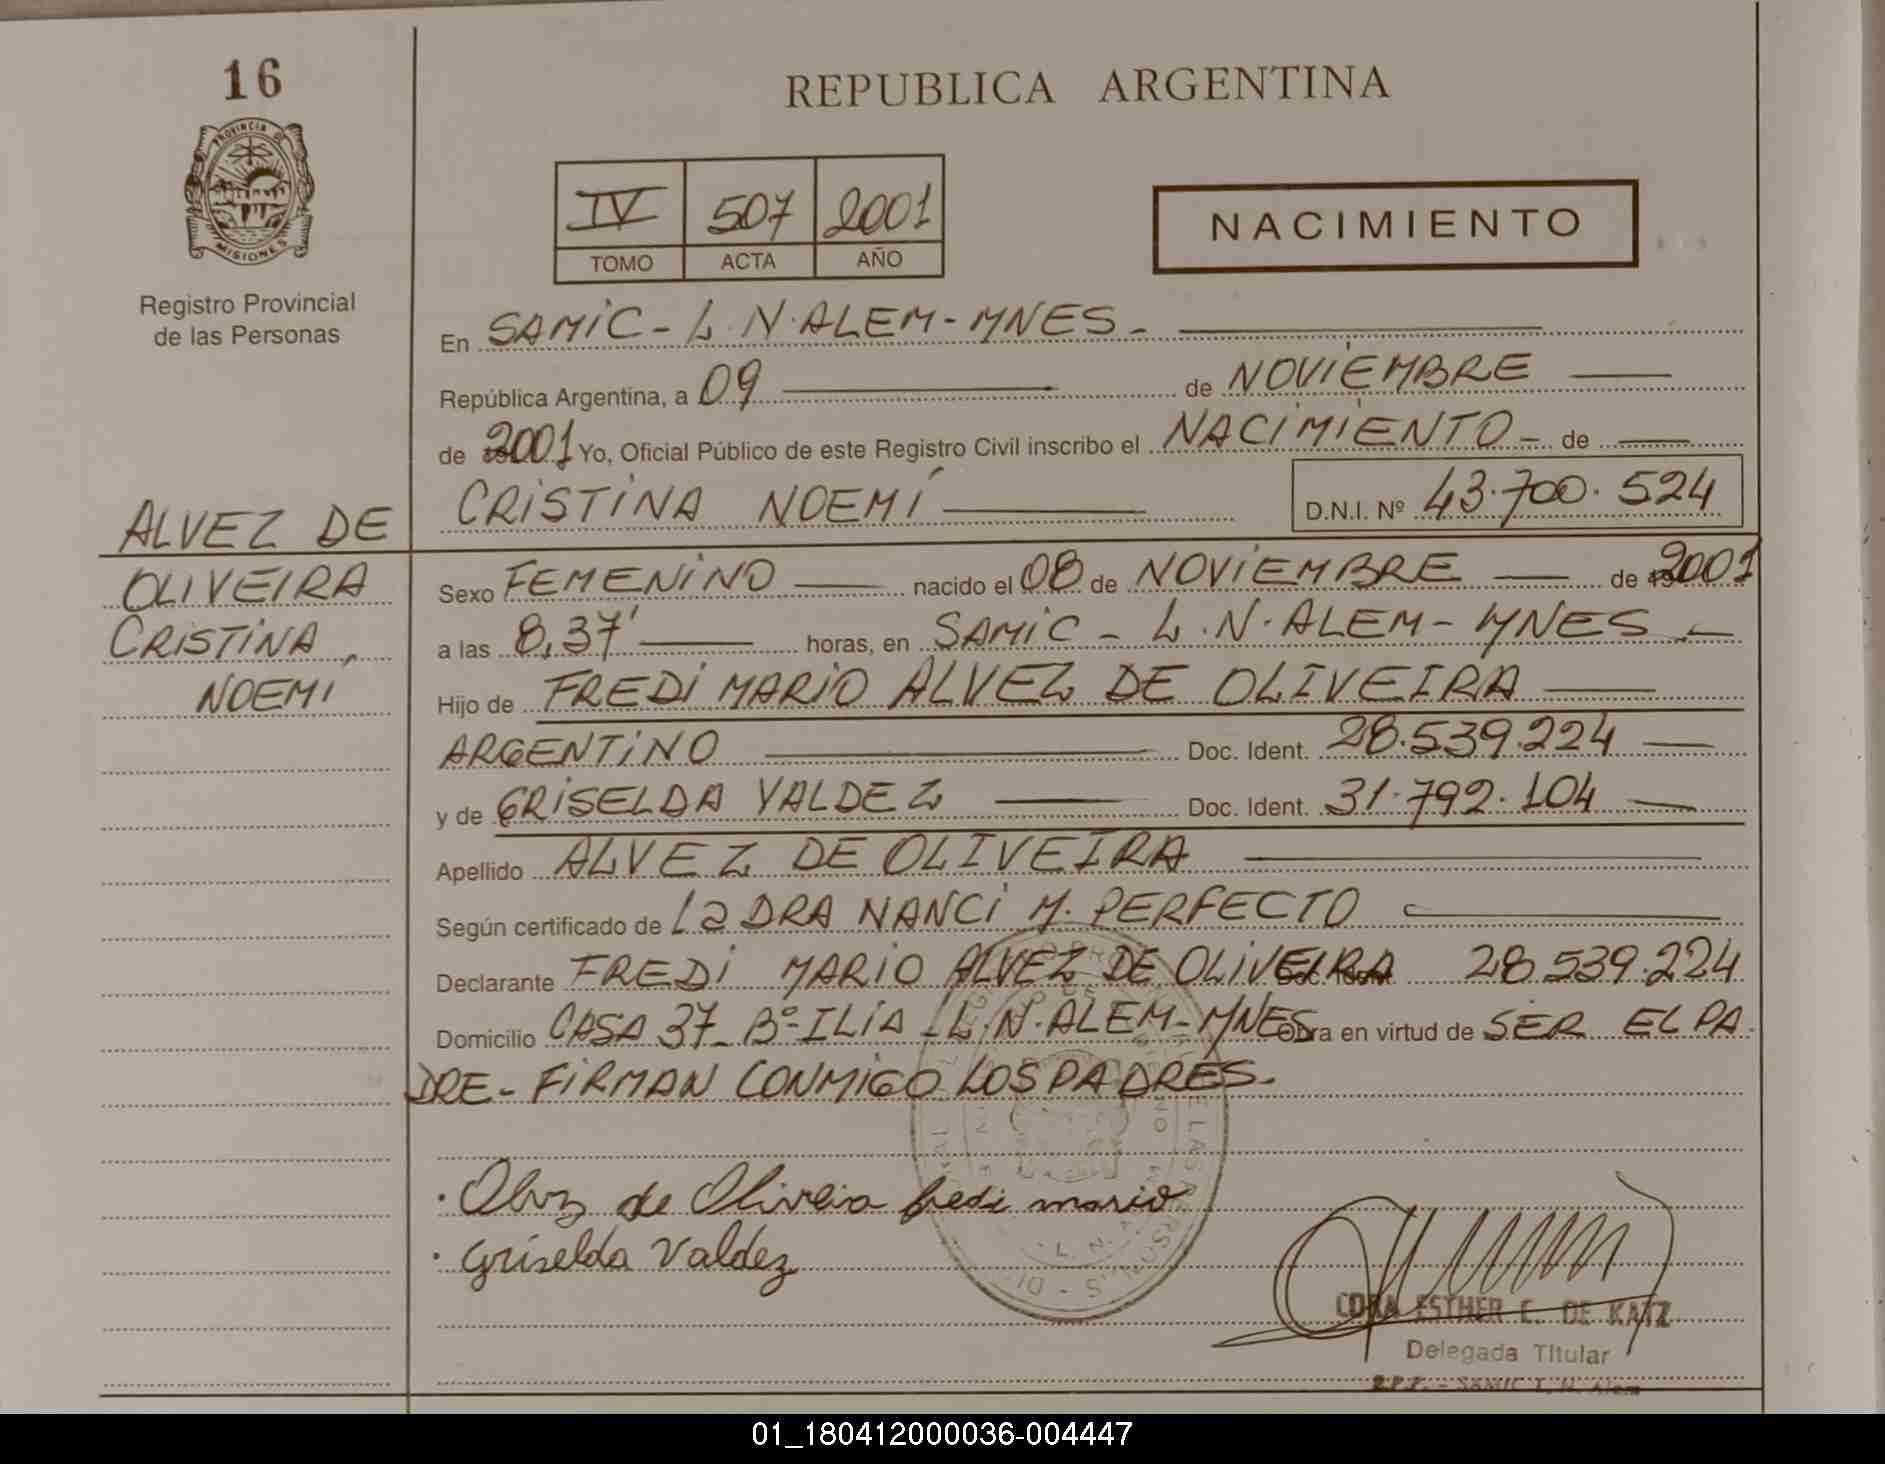 16
PROVINCIA DE
MISIONES
Registro Provincial
de las Personas
ALVEZ DE
OLIVEIRA
CRISTINA
NOEMÍ
REPUBLICA ARGENTINA
IV 507 2001
TOMO ACTA AÑO
NACIMIENTO
En SAMIC - L.N.ALEM - MNES -
República Argentina, a 09 de NOVIEMBRE
de 2001 Yo, Oficial Público de este Registro Civil inscribo el NACIMIENTO - de
CRISTINA NOEMÍ D.N.I. Nº 43.700.524
Sexo FEMENINO nacido el 08 de NOVIEMBRE de 2001
a las 8,37' horas, en SAMIC - L.N.ALEM - MNES -
Hijo de FREDI MARIO ALVEZ DE OLIVEIRA
ARGENTINO Doc. Ident. 28.539.224
y de GRISELDA VALDEZ Doc. Ident. 31.792.104
Apellido ALVEZ DE OLIVEIRA
Según certificado de La DRA NANCI M. PERFECTO
Declarante FREDI MARIO ALVEZ DE OLIVEIRA Doc. Ident. 28.539.224
Domicilio CASA 37 - Bº - ILIA - L.N.ALEM - MNES Obra en virtud de SER EL PA
DRE - FIRMAN CONMIGO LOS PADRES -
Alvz de Oliveia fredi mario
Griselda Valdez
CORA ESTHER C. DE KATZ
Delegada Titular
R.P.P. - SAMIC L. N. Alem
01_180412000036-004447